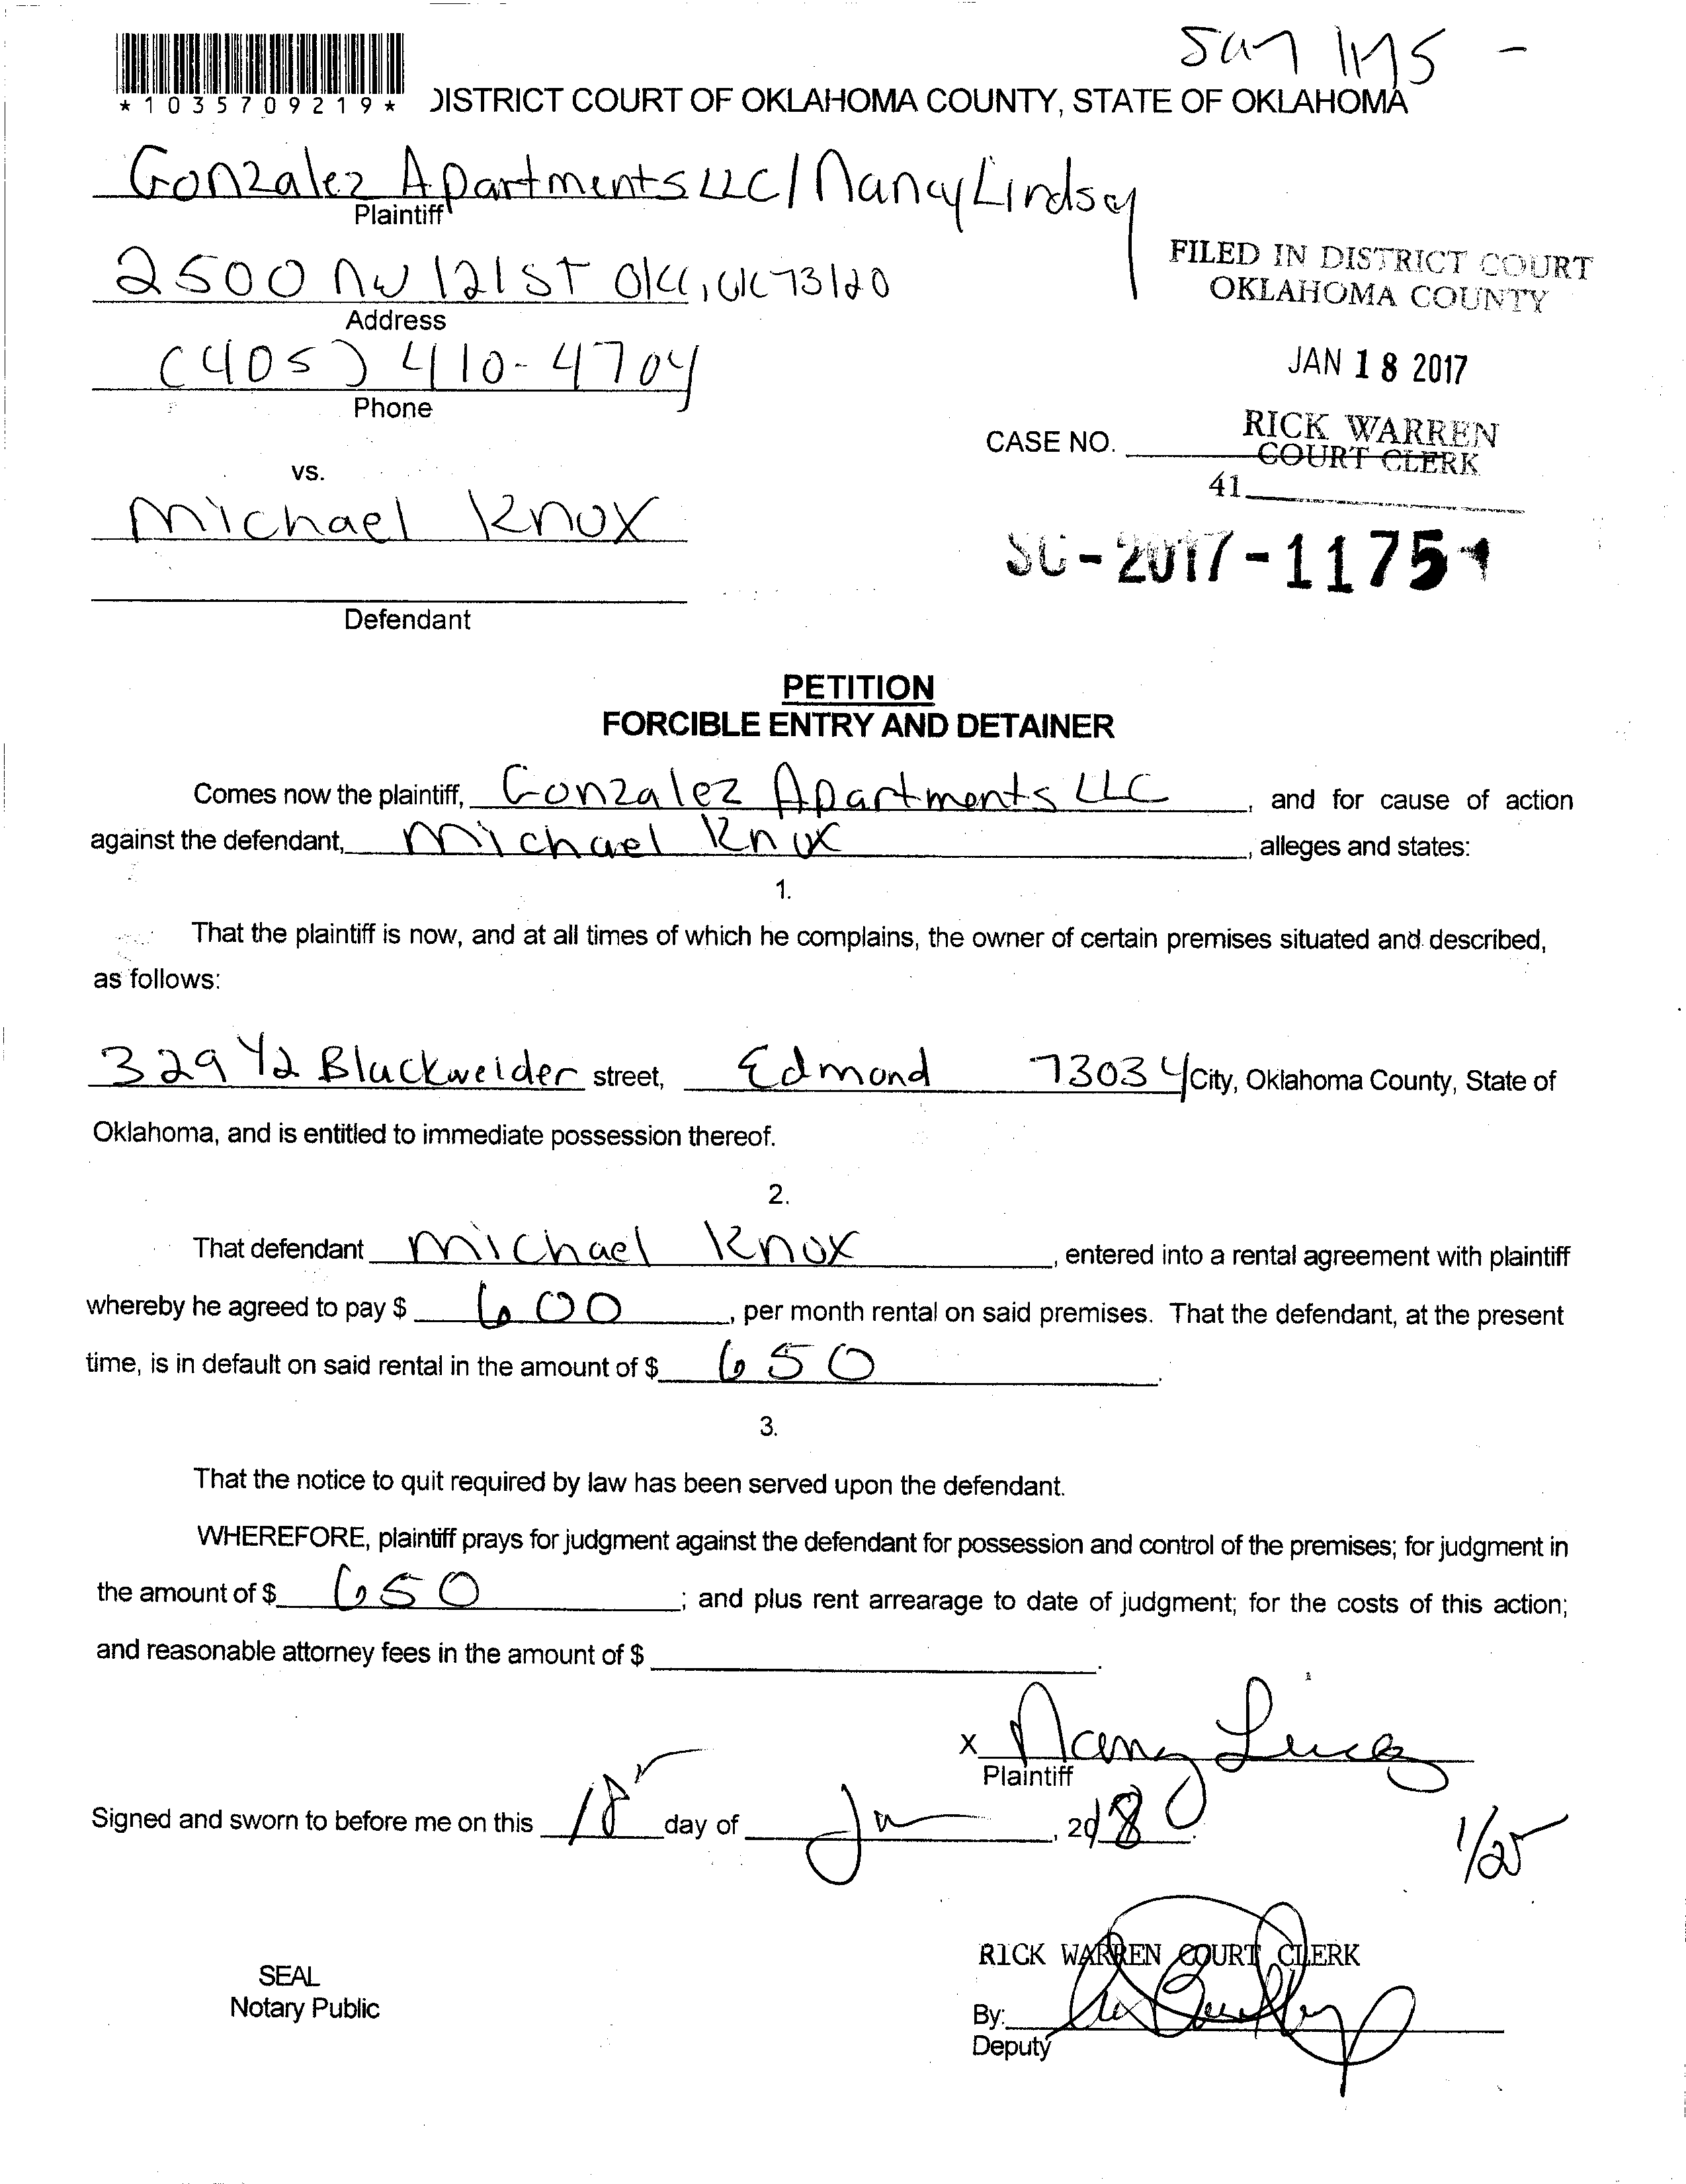 *1035709219*
DISTRICT COURT OF OKLAHOMA COUNTY, STATE OF OKLAHOMA
Gonzalez Apartments LLC / Nancy Lindsey
Plaintiff
2500 NW 121 ST OKC, OK 73120
Address
(405) 410-4704
Phone
FILED IN DISTRICT COURT
OKLAHOMA COUNTY
JAN 18 2017
RICK WARREN
COURT CLERK
41
CASE NO.
SC-2017-1175
vs.
Michael Knox
Defendant
PETITION
FORCIBLE ENTRY AND DETAINER
Comes now the plaintiff, Gonzalez Apartments LLC, and for cause of action
against the defendant, Michael Knox, alleges and states:
1.
That the plaintiff is now, and at all times of which he complains, the owner of certain premises situated and described,
as follows:
329 1/2 Blackwelder street, Edmond 73034 City, Oklahoma County, State of
Oklahoma, and is entitled to immediate possession thereof.
2.
That defendant Michael Knox, entered into a rental agreement with plaintiff
whereby he agreed to pay $ 600, per month rental on said premises. That the defendant, at the present
time, is in default on said rental in the amount of $ 650.
3.
That the notice to quit required by law has been served upon the defendant.
WHEREFORE, plaintiff prays for judgment against the defendant for possession and control of the premises; for judgment in
the amount of $ 650; and plus rent arrearage to date of judgment; for the costs of this action;
and reasonable attorney fees in the amount of $ .
X Nancy
Plaintiff
Signed and sworn to before me on this 18 day of Jan, 20
1/25
SEAL
Notary Public
RICK WARREN COURT CLERK
By:
Deputy